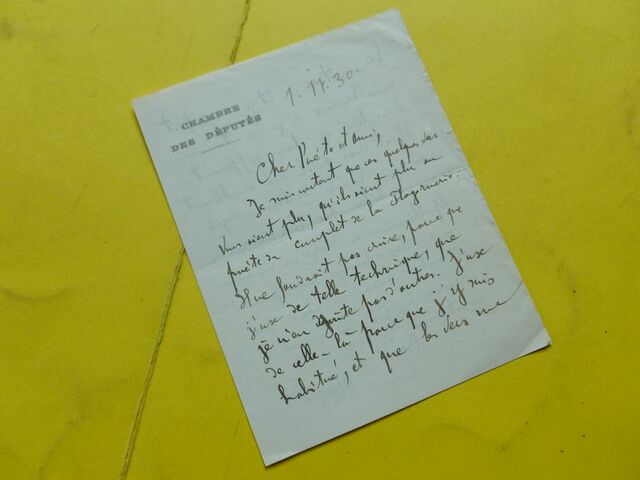 CHAMBRE
DES DÉPUTÉS
1. 11. 30.
Cher Poète et ami,
Je suis content que ces quelques vers
vous aient plu, qu'ils aient plu au
poète si complet de la
Il ne faudrait pas croire, parce que
j'use de telle technique, que
je n'en goûte pas d'autres. J'use
de celle-là parce que j'y suis
habitué, et que les vers me